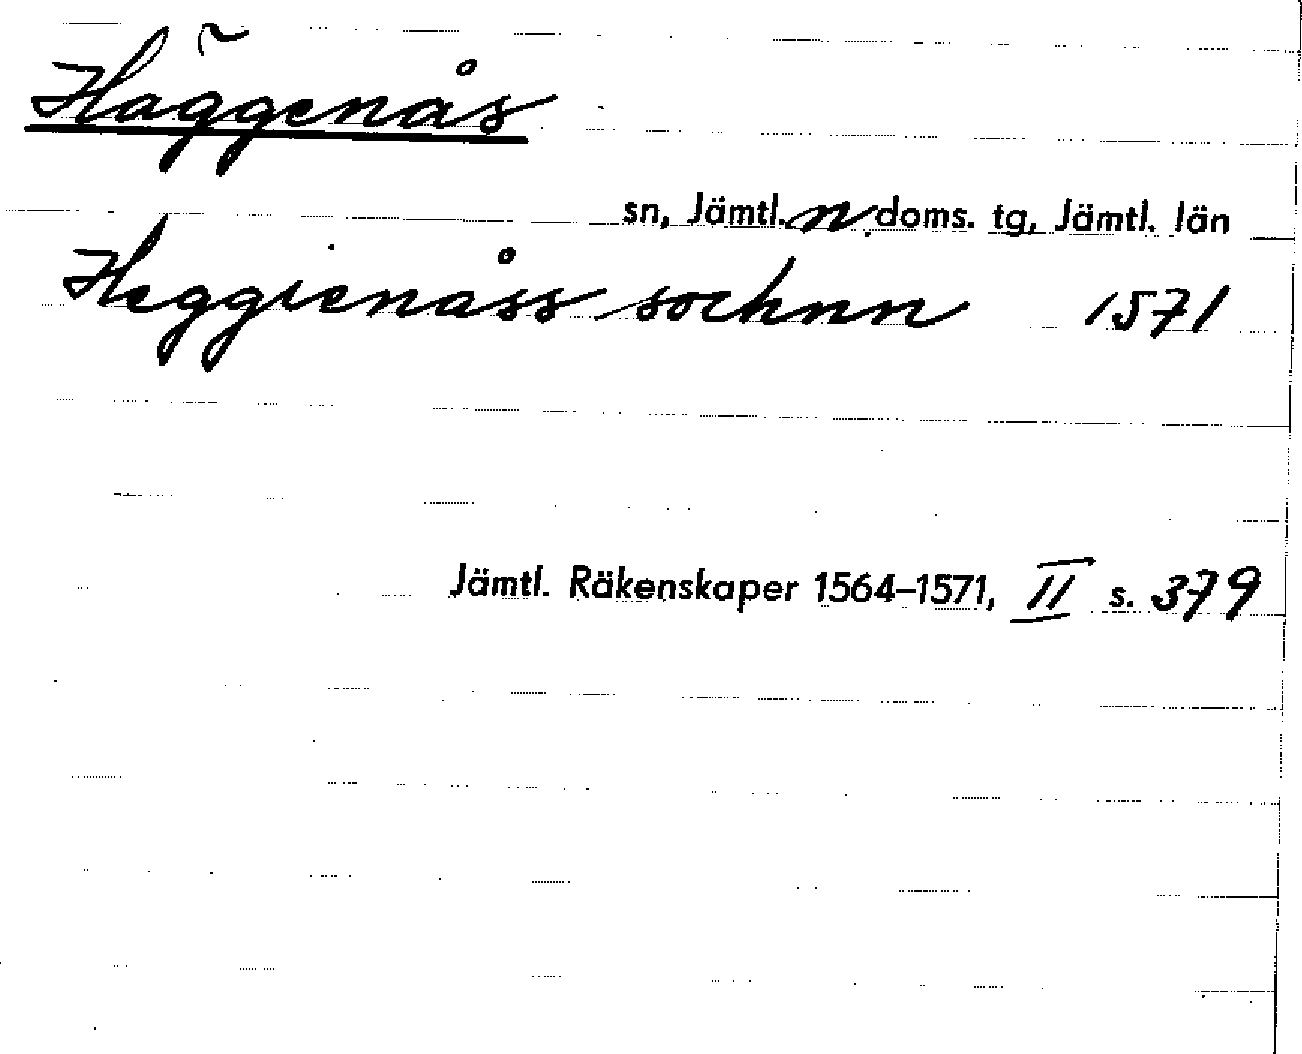 Häggenås
sn, Jämtl. n. doms. tg, Jämtl. län
Heggienåss sochnn 1571
Jämtl. Räkenskaper 1564–1571, II s. 379